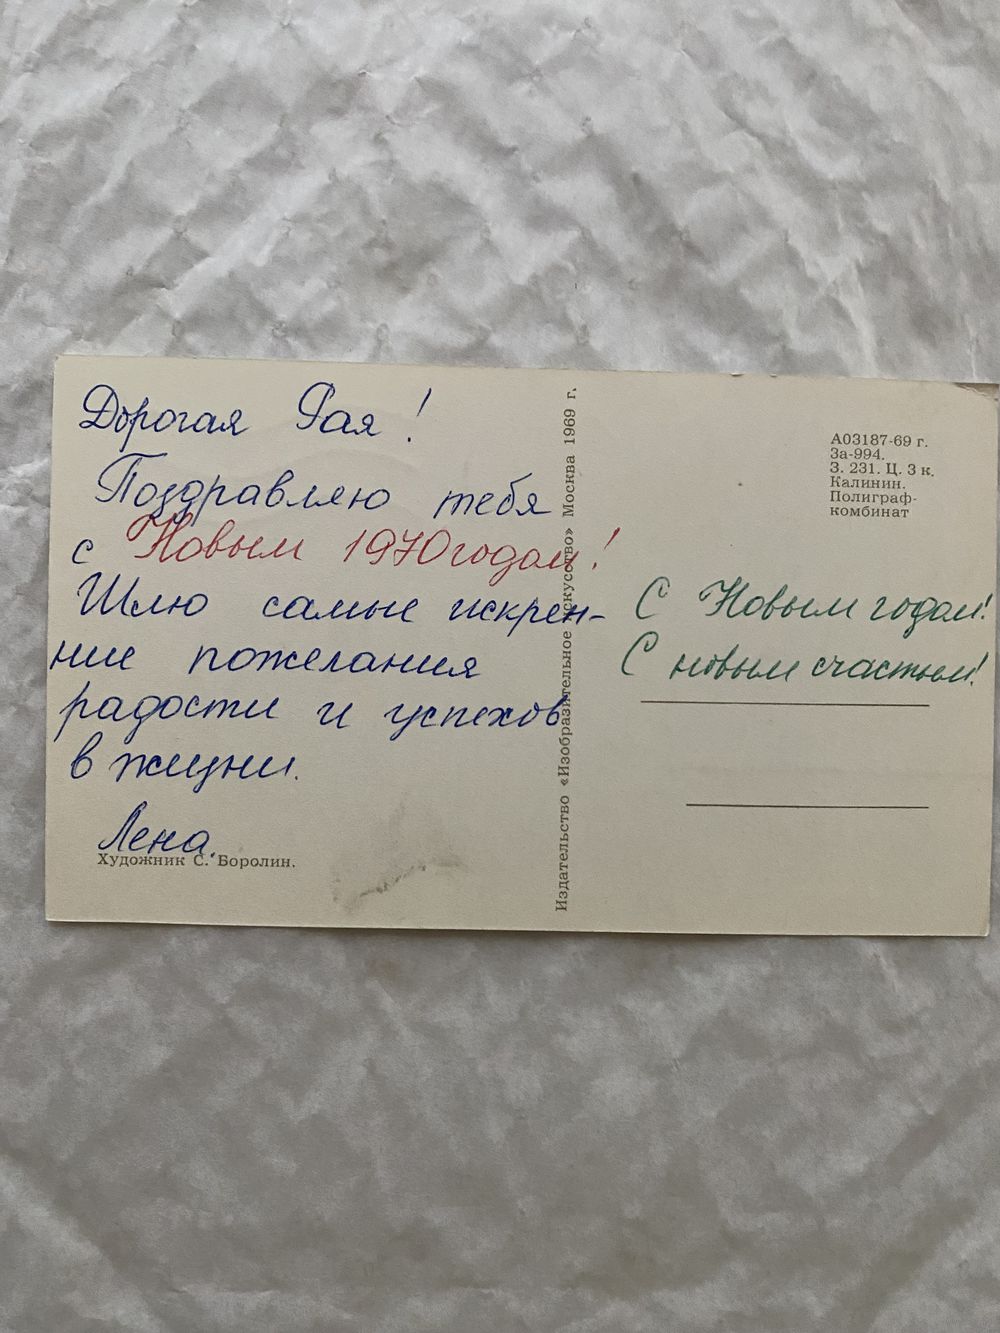 Дорогая Рая!
Поздравляю тебя
с Новым 1970 годом!
Шлю самые искрен-
ние пожелания
радости и успехов
в жизни.
Лена.
Художник С. Боролин.
Издательство «Изобразительное искусство» Москва 1969 г.
А03187-69 г.
За-994.
З. 231. Ц. 3 к.
Калинин.
Полиграф-
комбинат
С Новым годом!
С новым счастьем!